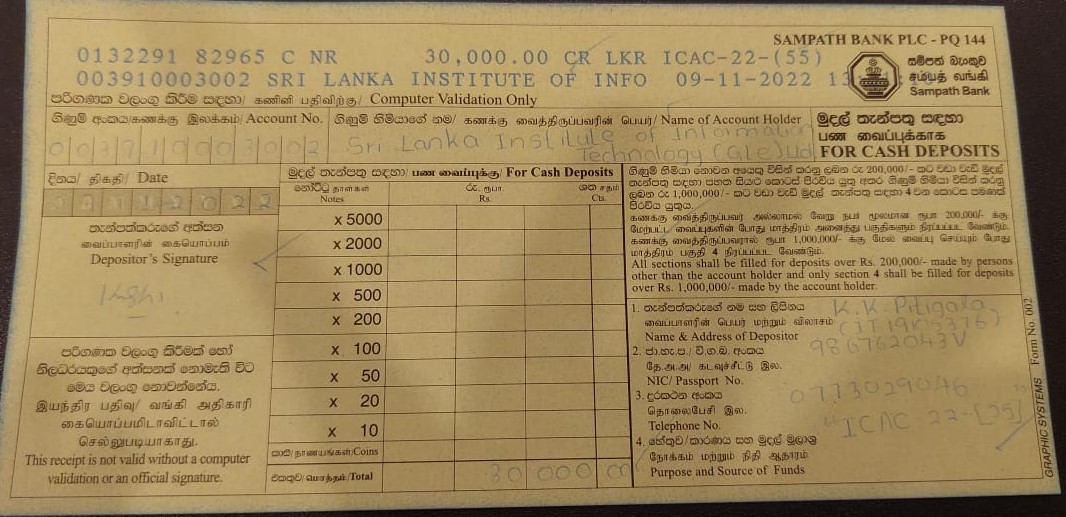 SAMPATH BANK PLC - PQ 144
0132291 82965 C NR 30,000.00 CR LKR ICAC-22-(55)
003910003002 SRI LANKA INSTITUTE OF INFO 09-11-2022 13
සම්පත් බැංකුව
சம்பத் வங்கி
Sampath Bank
පරිගණක වලංගු කිරීම සඳහා/ கணினி பதிவிற்கு/ Computer Validation Only
ගිණුම් අංකය/கணக்கு இலக்கம்/ Account No. ගිණුම් හිමියාගේ නම/ கணக்கு வைத்திருப்பவரின் பெயர்/ Name of Account Holder
003910003002 Sri Lanka Institute of Information
Technology (Gle) Ltd
මුදල් තැන්පතු සඳහා
பண வைப்புக்காக
FOR CASH DEPOSITS
දිනය/ திகதி/ Date
තැන්පත්කරුගේ අත්සන
வைப்பாளரின் கையொப்பம்
Depositor's Signature
පරිගණක වලංගු කිරීමක් හෝ
නිලධරයකුගේ අත්සනක් නොමැති විට
මෙය වලංගු නොවන්නේය.
இயந்திர பதிவு/ வங்கி அதிகாரி
கையொப்பமிடாவிட்டால்
செல்லுபடியாகாது.
This receipt is not valid without a computer
validation or an official signature.
මුදල් තැන්පතු සඳහා/ பண வைப்புக்கு/ For Cash Deposits
නෝට්ටු தாள்கள் රු. ரூபா. ශත சதம்
Notes Rs. Cts.
x 5000
x 2000
x 1000
x 500
x 200
x 100
x 50
x 20
x 10
කාසි/நாணயங்கள்/Coins
එකතුව/மொத்தம்/Total 30 000 00
ගිණුම් හිමියා නොවන අයෙකු විසින් කරනු ලබන රු 200,000/- කට වඩා වැඩි මුදල්
තැන්පතු සඳහා පහත සියළු කොටස් පිරවිය යුතු අතර ගිණුම් හිමියා විසින් කරනු
ලබන රු 1,000,000/- කට වඩා වැඩි මුදල් තැන්පතු සඳහා 4 වන කොටස පමණක්
පිරවිය යුතුය.
கணக்கு வைத்திருப்பவர் அல்லாமல் வேறு நபர் மூலமான ரூபா 200,000/- க்கு
மேற்பட்ட வைப்புகளின் போது மாத்திரம் அனைத்து பகுதிகளும் நிரப்பப்பட வேண்டும்.
கணக்கு வைத்திருப்பவரால் ரூபா 1,000,000/- க்கு மேல் வைப்பு செய்யும் போது
மாத்திரம் பகுதி 4 நிரப்பப்பட வேண்டும்.
All sections shall be filled for deposits over Rs. 200,000/- made by persons
other than the account holder and only section 4 shall be filled for deposits
over Rs. 1,000,000/- made by the account holder.
1. තැන්පත්කරුගේ නම සහ ලිපිනය K.K. Pitigala
வைப்பாளரின் பெயர் மற்றும் விலாசம் (IT19105376)
Name & Address of Depositor
2. ජා.හැ.ප./ වි.ග.බ. අංකය 986762043V
தே.அ.அ/ கடவுச்சீட்டு இல.
NIC/ Passport No.
3. දුරකථන අංකය 0773029046
தொலைபேசி இல.
Telephone No.
4. හේතුව/කාරණය සහ මුදල් මූලාශ්‍ර "ICAC 22-[55]"
நோக்கம் மற்றும் நிதி ஆதாரம்
Purpose and Source of Funds
GRAPHIC SYSTEMS Form No. 002